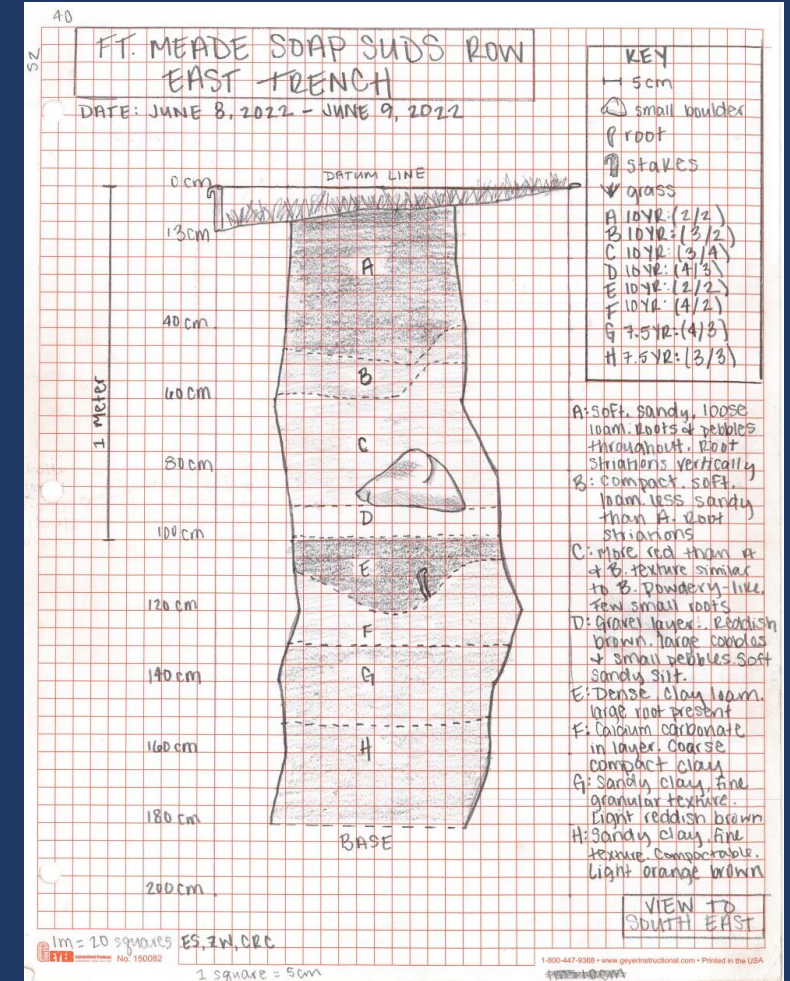 40
52
FT. MEADE SOAP SUDS ROW
EAST TRENCH
DATE: JUNE 8, 2022 - JUNE 9, 2022
KEY
5cm
small boulder
root
stakes
grass
A 10YR: (2/2)
B 10YR: (3/2)
C 10YR: (3/4)
D 10YR: (4/3)
E 10YR: (2/2)
F 10YR: (4/2)
G 7.5YR: (4/3)
H 7.5YR: (3/3)
DATUM LINE
0cm
13cm
40cm
60cm
80cm
100cm
120cm
140cm
160cm
180cm
200cm
1 Meter
A
B
C
D
E
F
G
H
BASE
A: Soft, sandy, loose
loam. Roots & pebbles
throughout. Root
striations vertically
B: Compact. soft.
loam. less sandy
than A. Root
striations
C: More red than A
& B. texture similar
to B. Powdery-like.
Few small roots
D: Gravel layer. Reddish
brown. large cobbles
& small pebbles. Soft
sandy silt.
E: Dense clay loam.
large root present
F: Calcium carbonate
in layer. Coarse
compact clay
G: Sandy clay, fine
granular texture.
Light reddish brown
H: Sandy clay, fine
texture. Compactable.
Light orange brown
VIEW TO
SOUTH EAST
1m = 20 squares ES, ZW, CRC
GEYER Instructional Products No. 150082
1-800-447-9368 • www.geyerinstructional.com • Printed in the USA
1 square = 5cm